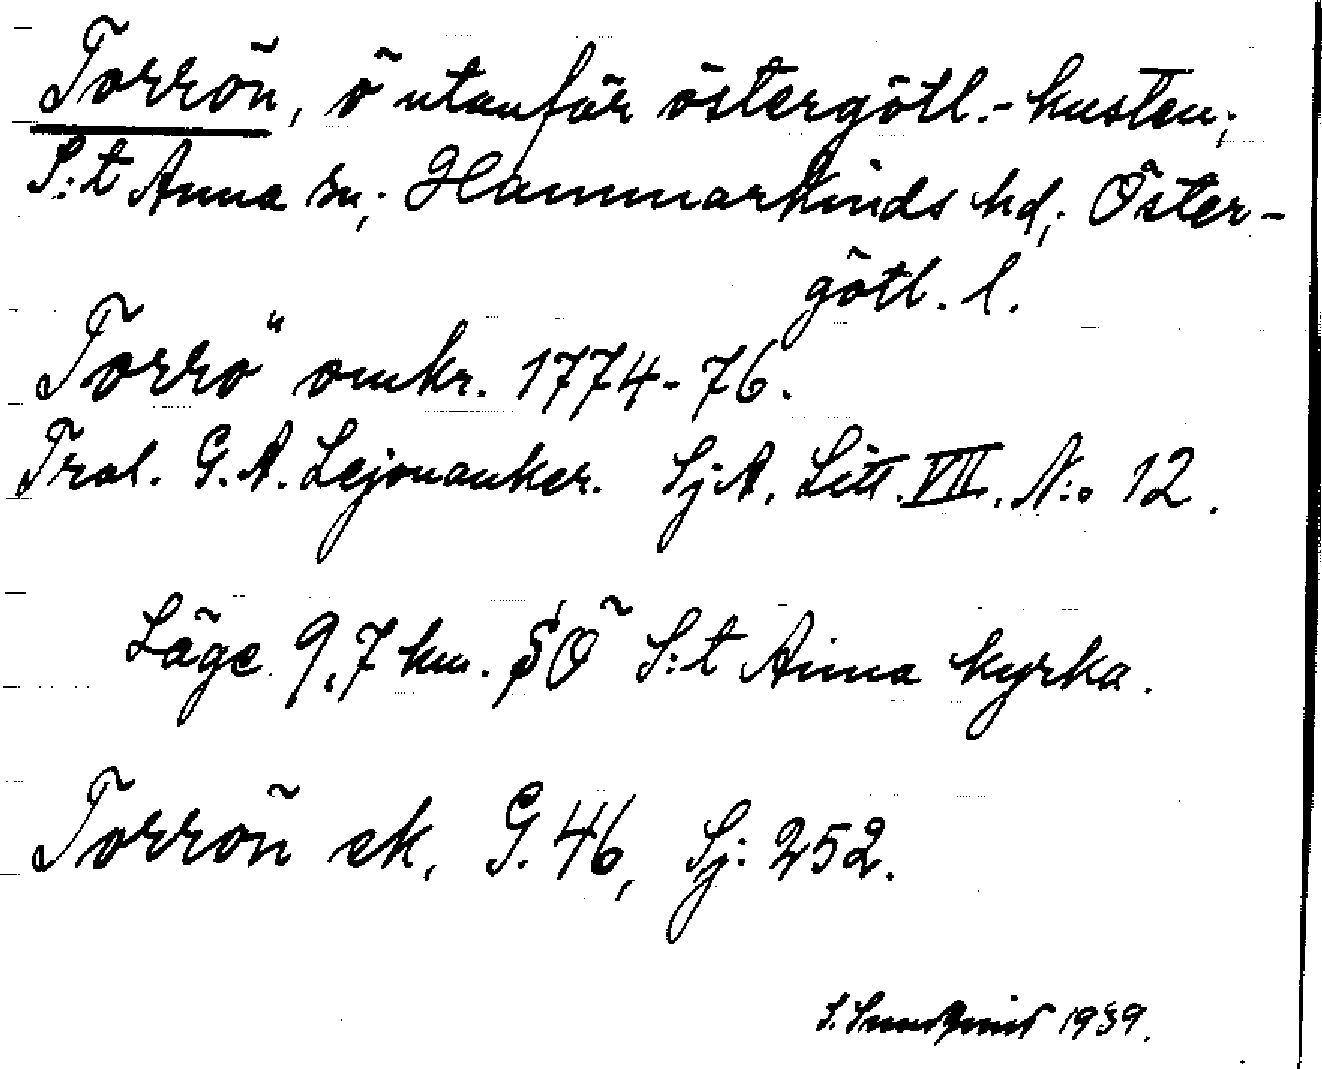 Torrön, ö utanför östergötl.-kusten;
S:t Anna sn; Hammarkinds hd; Öster-
götl. l.
Torrö" omkr. 1774-76.
Trol. G. A. Lejonanker. SjA. Litt. VII. N:o 12.
Läge 9,7 km. SÖ S:t Anna kyrka.
Torrön ek. G. 46, Sj: 252.
S. Sundqvist 1939.